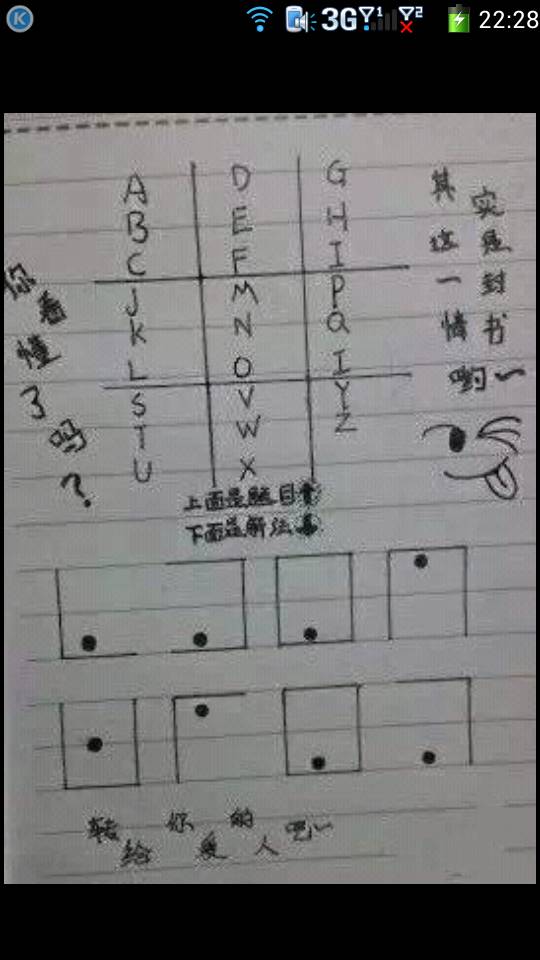 K 3G 1 2 22:28
A D G
B E H
C F I
J M P
K N Q
L O I
S V Y
T W Z
U X
其实
这是
一封
情书
哟~
你看懂了吗?
上面是题目
下面是解法
转给你的爱人吧~